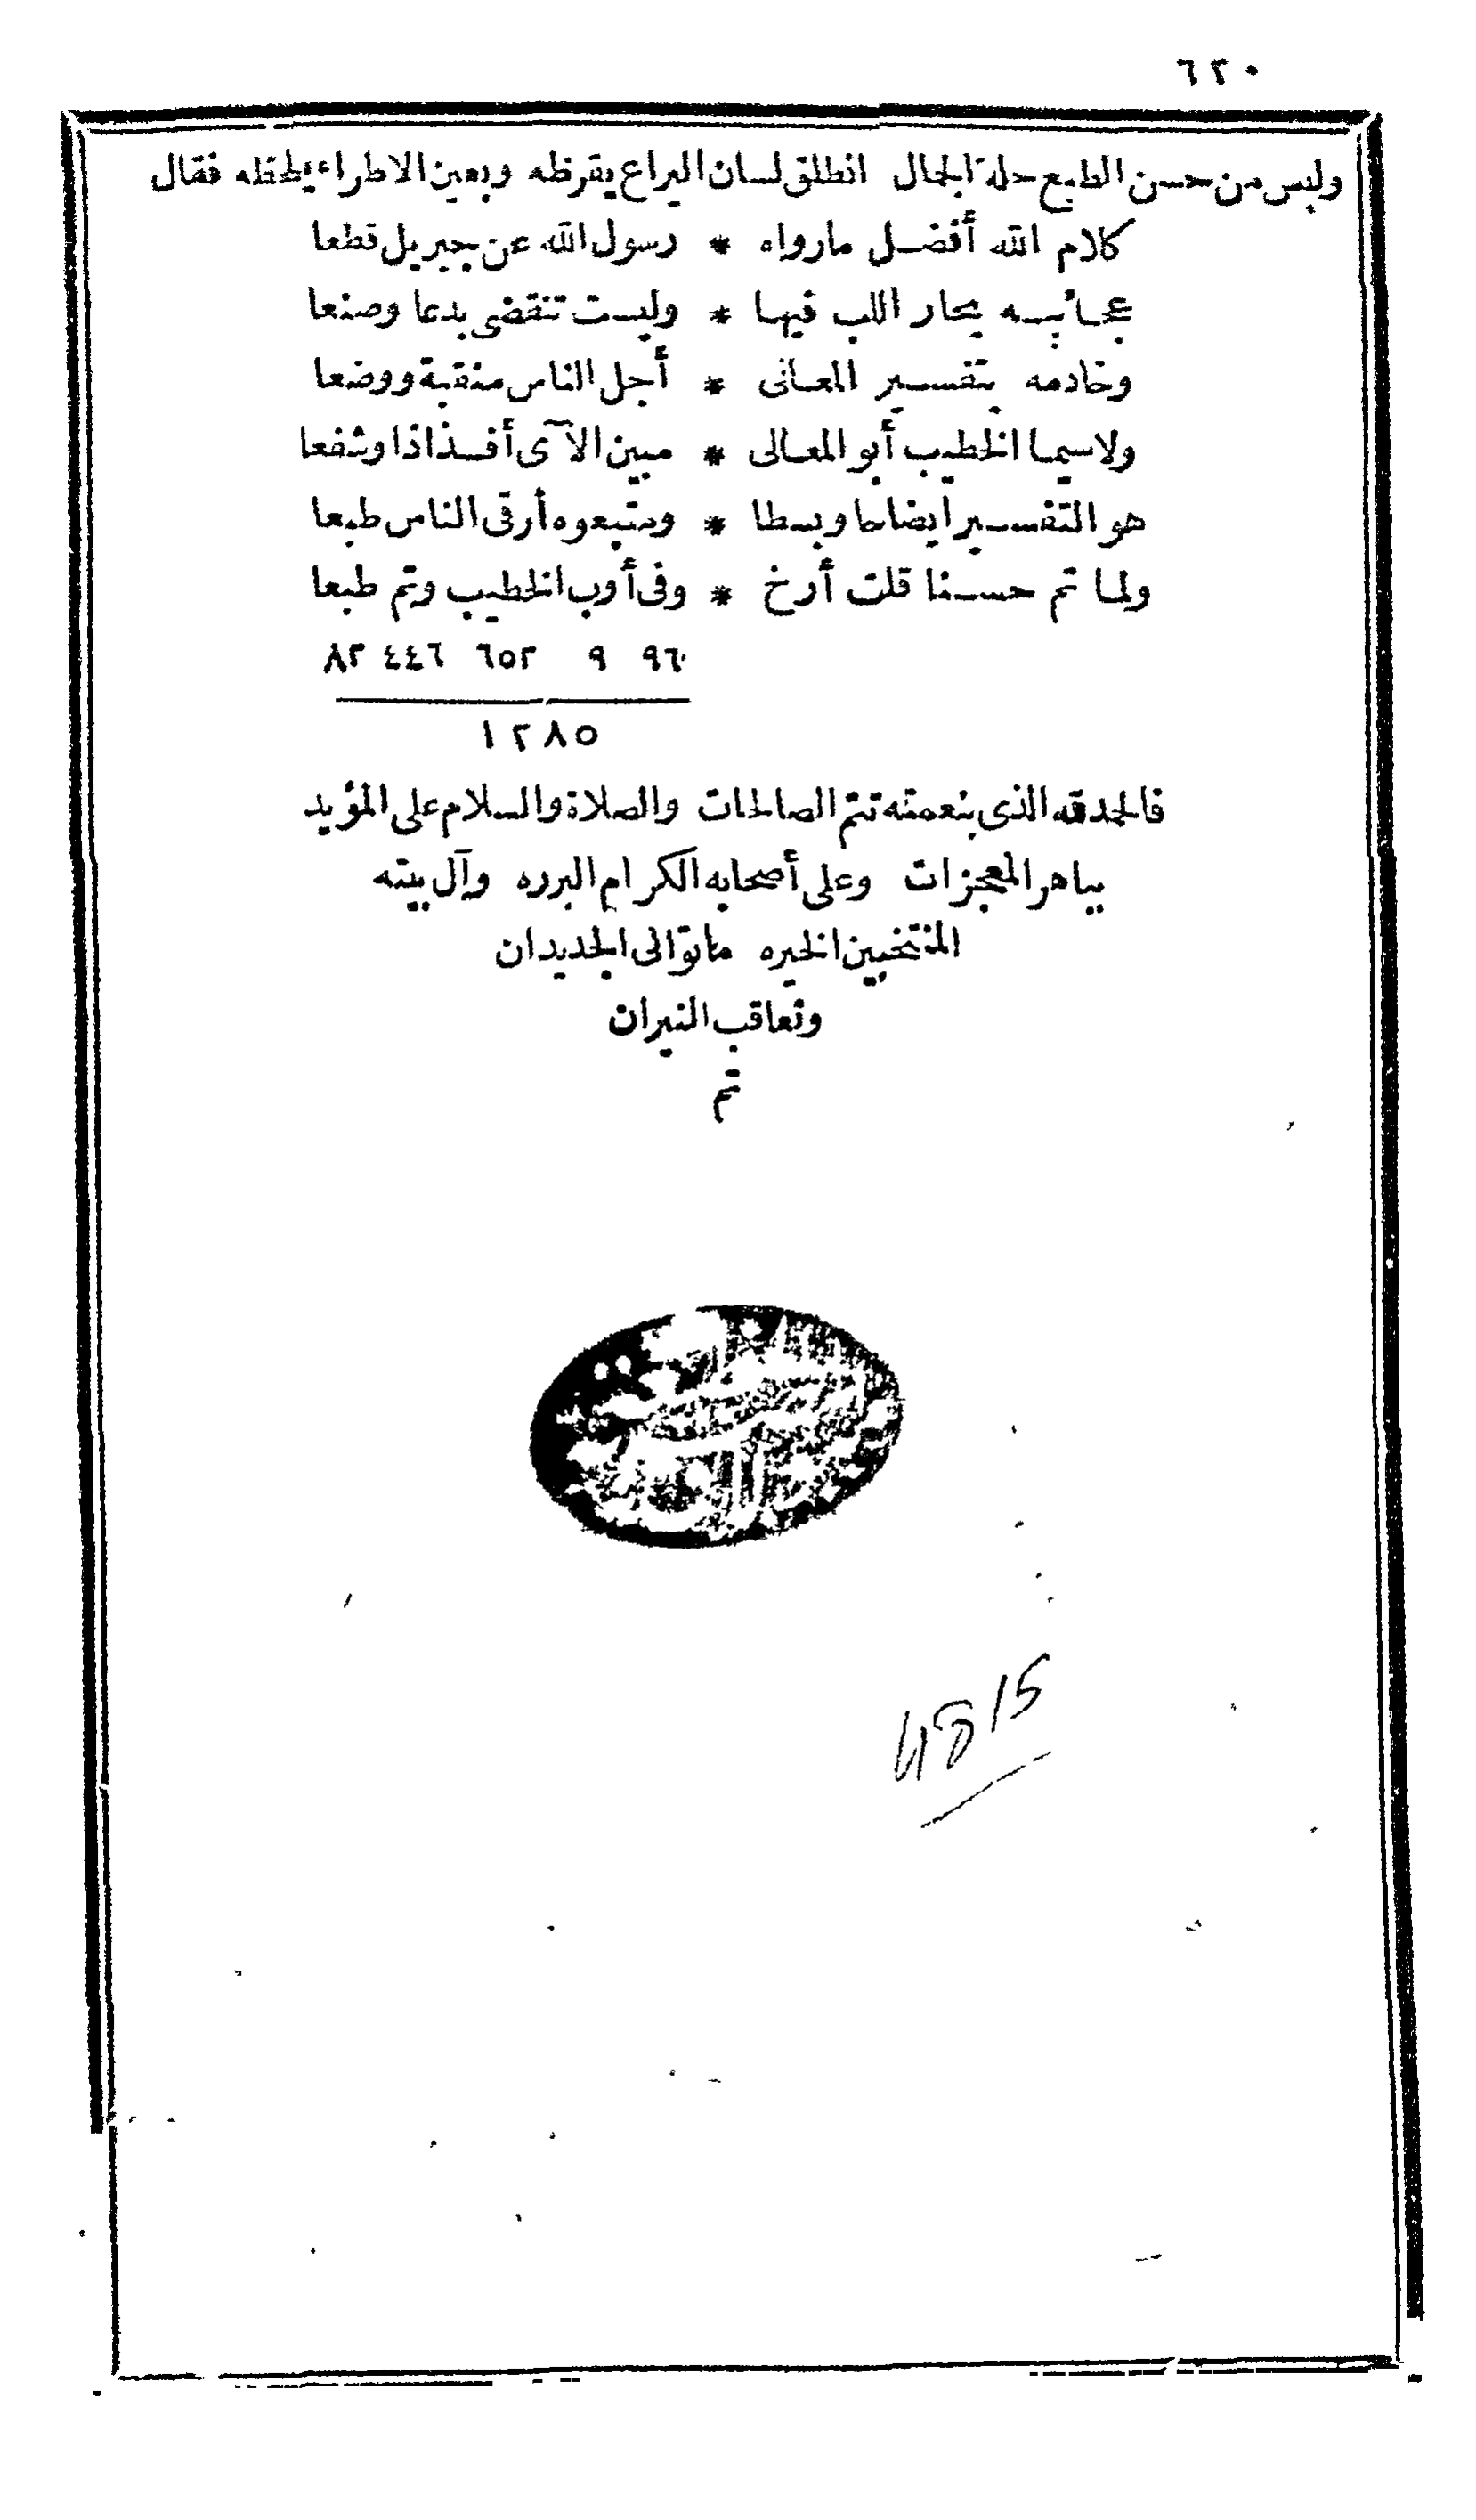 ٦٢٠
ولبس من حسن الطبع حلة الجمال انطلق لسان اليراع يقرظه وبعين الاطراء يلحظه فقال
كلام الله أفضل مارواه * رسول الله عن جبريل قطعا
عجائبه يحار اللب فيها * وليست تنقضى بدعا وصنعا
وخادمه بتفسير المعانى * أجل الناس منقبة ووضعا
ولاسيما الخطيب أبو المعالى * مبين الآى أفذاذا وشفعا
هو التفسير ايضاحا وبسطا * ومتبعوه أرقى الناس طبعا
ولما تم حسنا قلت أرخ * وفى أوب الخطيب وتم طبعا
٩٦ ٩ ٦٥٢ ٤٤٦ ٨٢
١٢٨٥
فالحمد لله الذى بنعمته تتم الصالحات والصلاة والسلام على المؤيد
بباهر المعجزات وعلى أصحابه الكرام البرره وآل بيته
المنتخبين الخيره ماتوالى الجديدان
وتعاقب النيران
تم